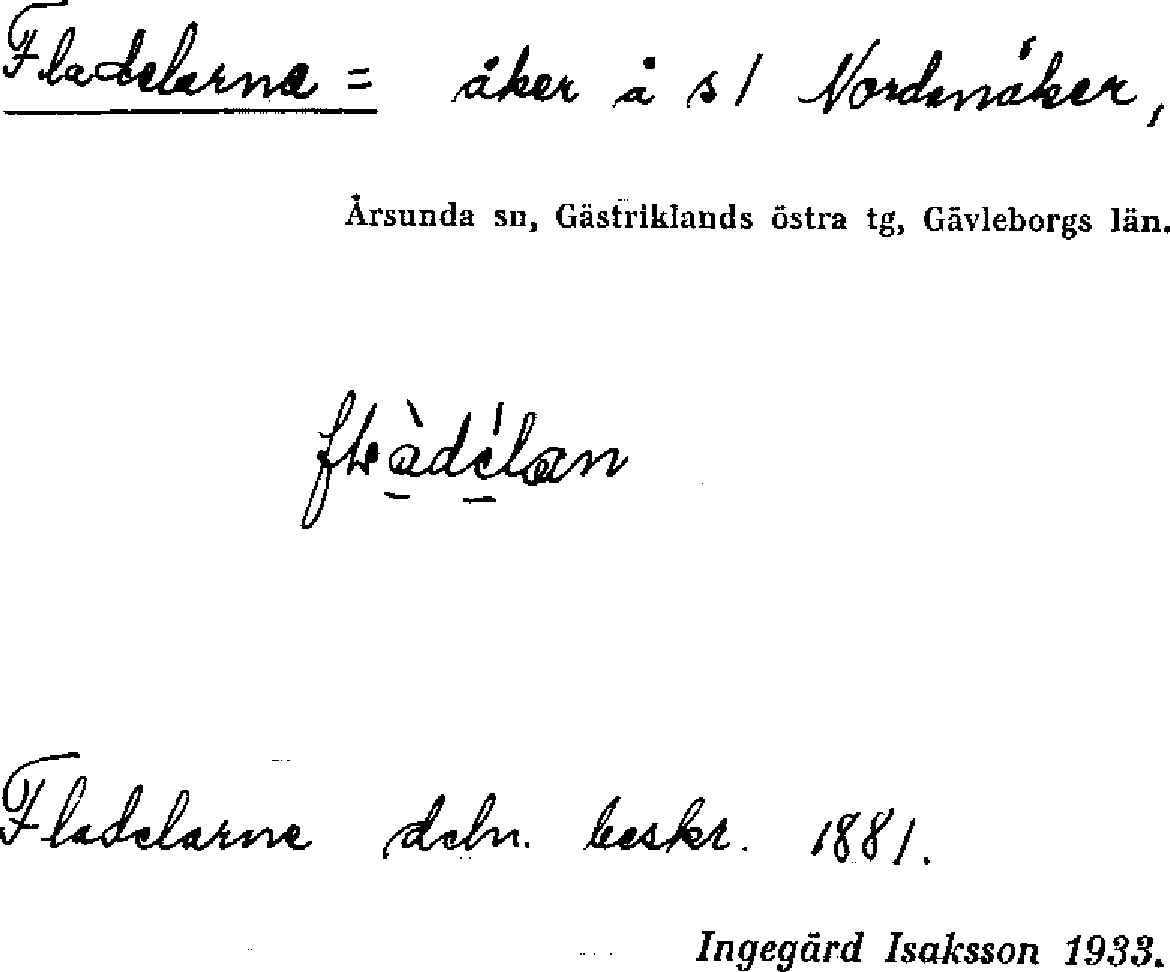 Fladelarne = åker å s/ Nordanåker,
Årsunda sn, Gästriklands östra tg, Gävleborgs län.
Fladelarne deln. beskr. 1881.
Ingegärd Isaksson 1933.